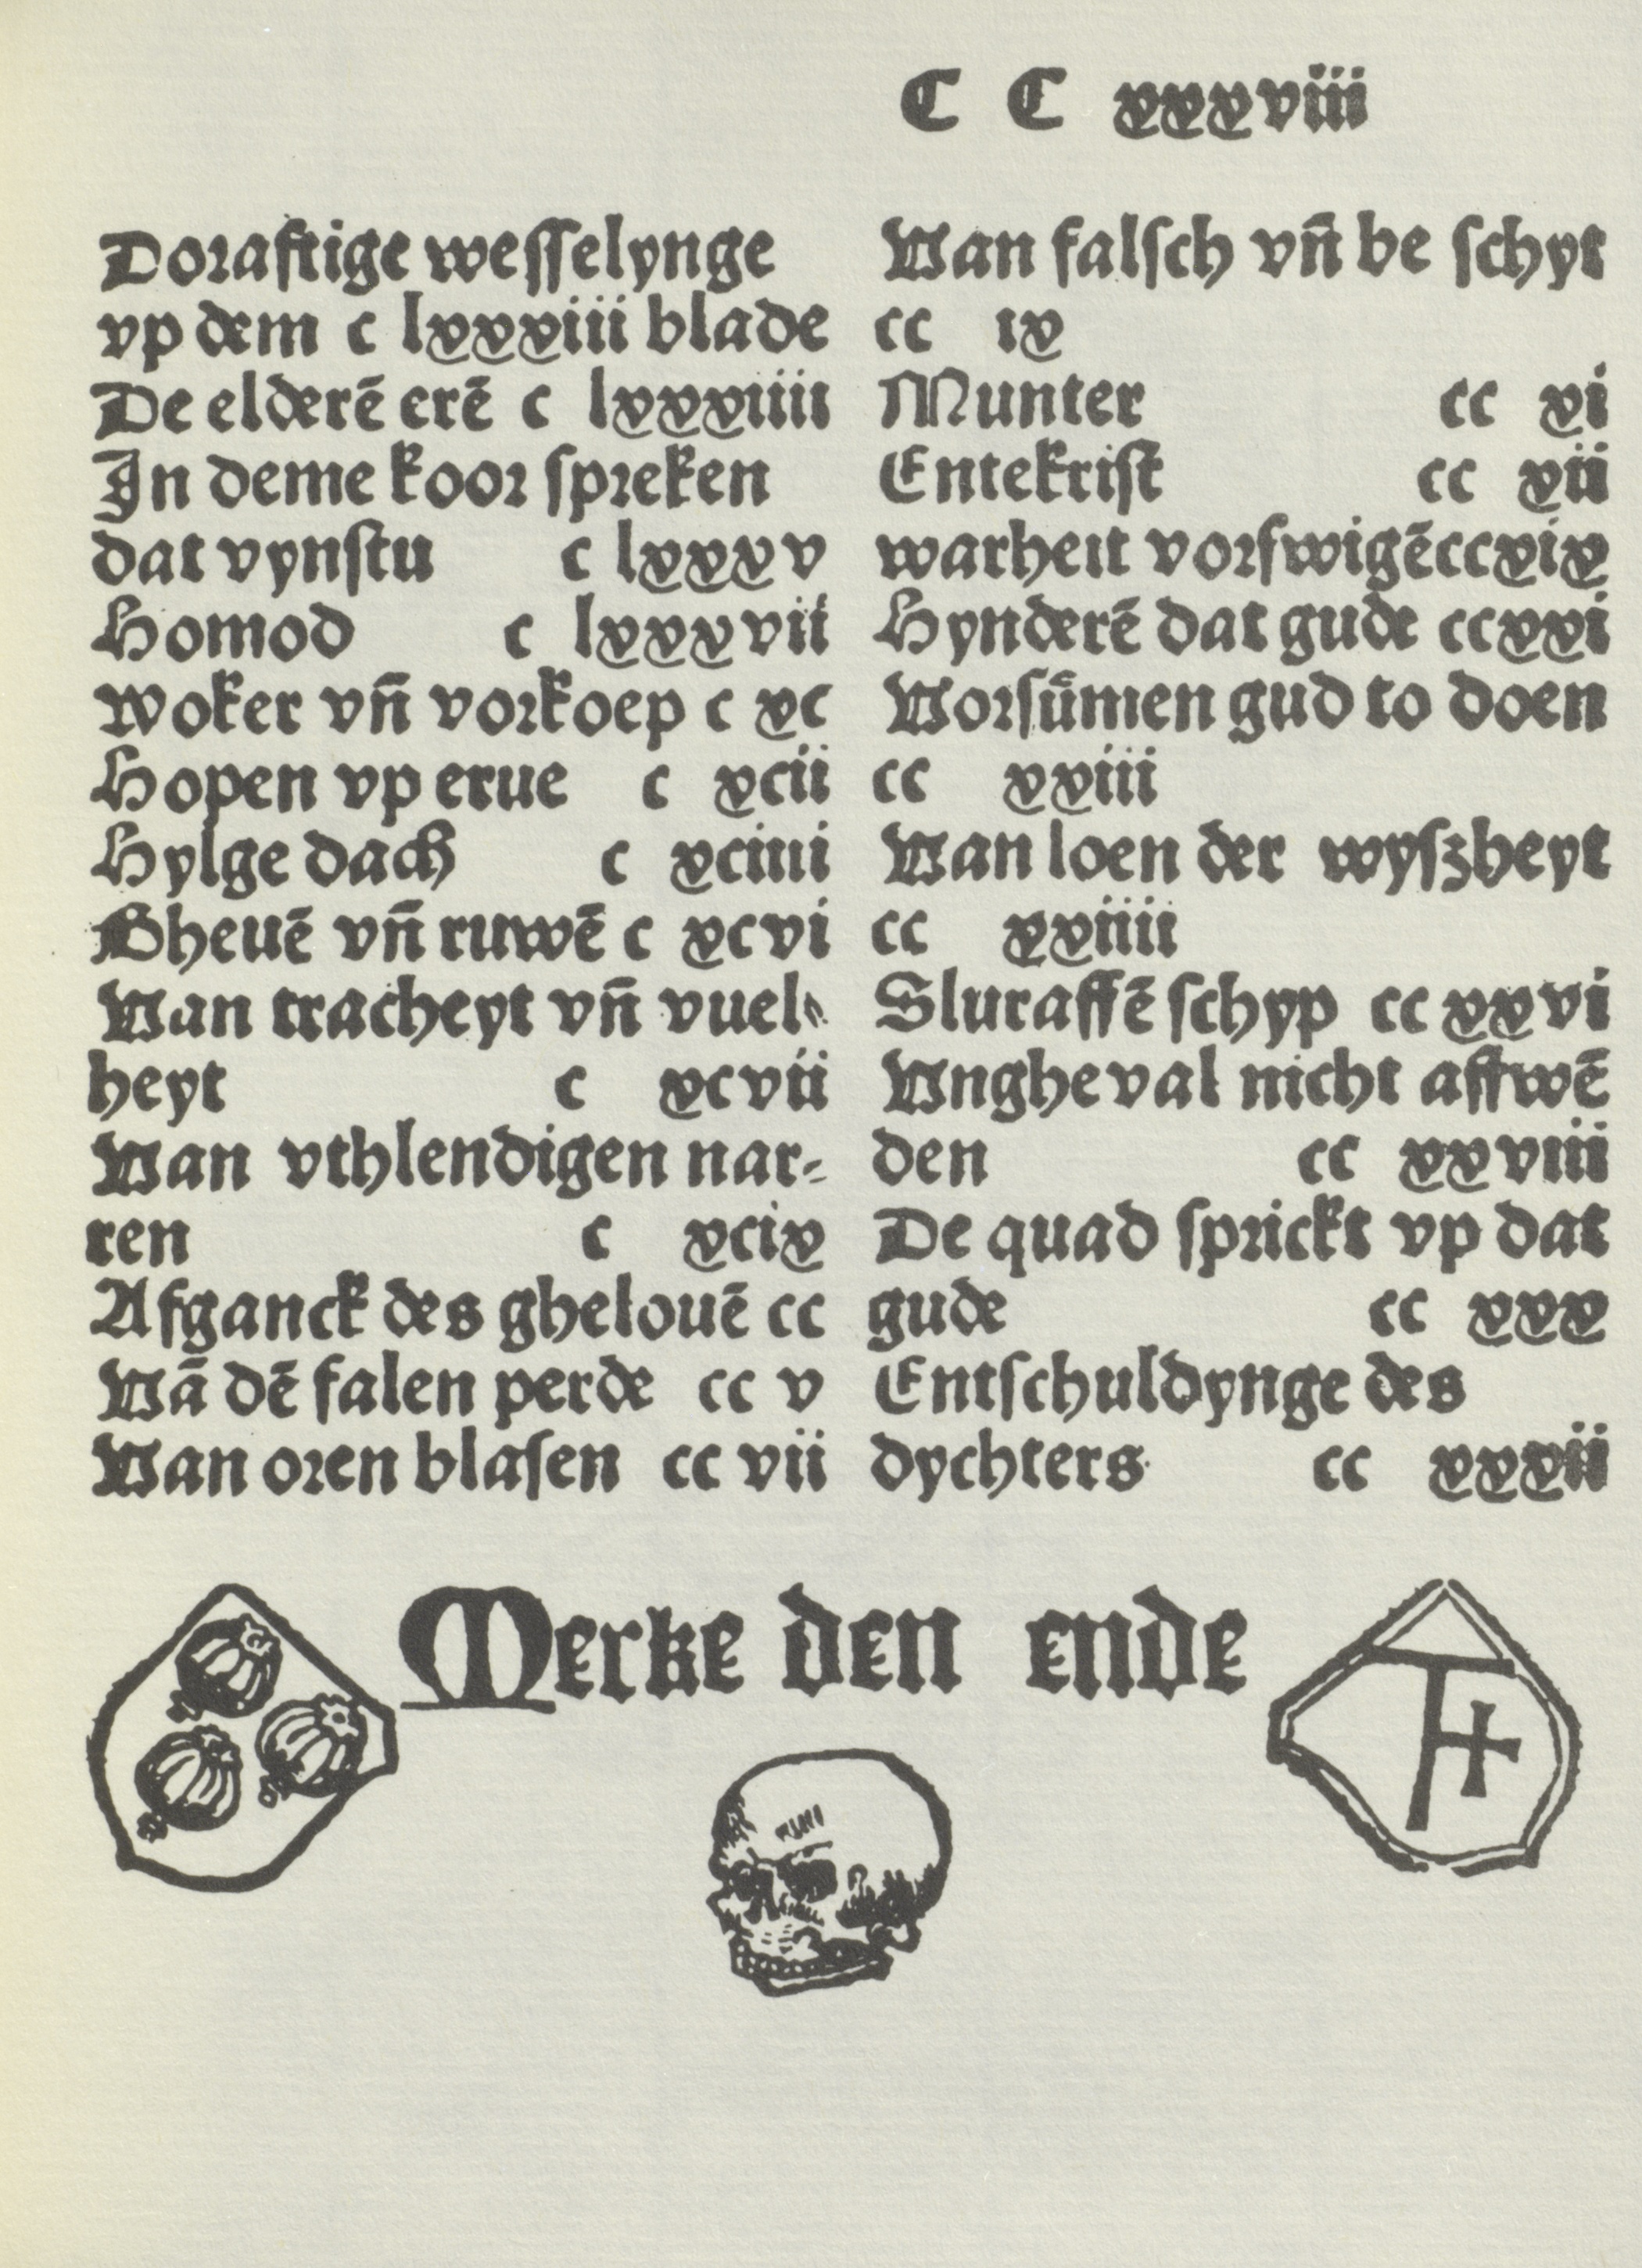 C C xxxviii
Doraftige wesselynge
vp dem c lxxxiii blade
De elderē erē c lxxxiiii
In deme koor spreken
dat vynstu c lxxxv
Homod c lxxxvii
woker vñ vorkoep c xc
Hopen vp erue c xcii
Hylge dach c xciiii
Gheuē vñ ruwē c xcvi
Van tracheyt vñ vuel⸗
heyt c xcvii
Van vthlendigen nar⸗
ren c xcix
Afganck des ghelouē cc
Vā dē falen perde cc v
Van oren blasen cc vii
Van falsch vñ be schyt
cc ix
Munter cc xi
Entekrist cc xii
warheit vorswigē cc xix
Hynderē dat gude cc xxi
Vorsümen gud to doen
cc xxiii
Van loen der wyszheyt
cc xxiiii
Sluraffē schyp cc xxvi
Vngheval nicht affwē
den cc xxviii
De quad sprickt vp dat
gude cc xxx
Entschuldynge des
dychters cc xxxii
Merke den ende